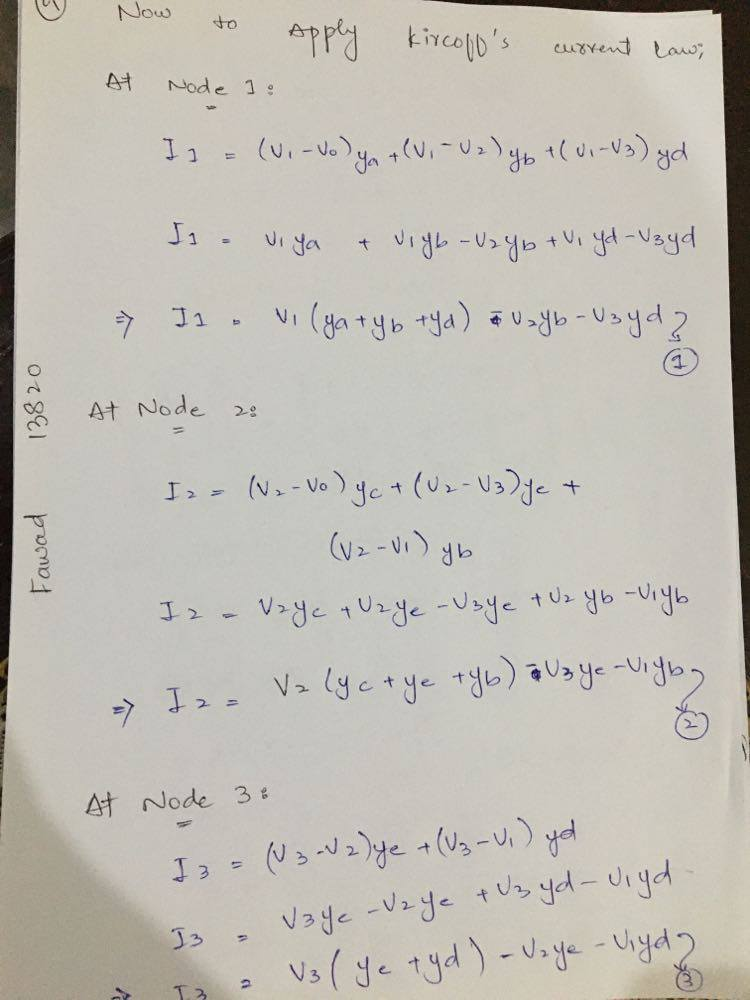 4) Now to Apply Kircoff's current law;
At Node 1:
I1 = (V1-V0)ya+(V1-V2)yb+(V1-V3)yd
I1 = V1ya + V1yb-V2yb+V1yd-V3yd
⇒ I1 = V1(ya+yb+yd) - V2yb-V3yd → ①
At Node 2:
I2 = (V2-V0)yc+(V2-V3)ye+
(V2-V1)yb
I2 = V2yc+V2ye-V3ye+V2yb-V1yb
⇒ I2 = V2(yc+ye+yb) - V3ye-V1yb → ②
At Node 3:
I3 = (V3-V2)ye+(V3-V1)yd
I3 = V3ye-V2ye+V3yd-V1yd
⇒ I3 = V3(ye+yd)-V2ye-V1yd → ③
Fawad 13820